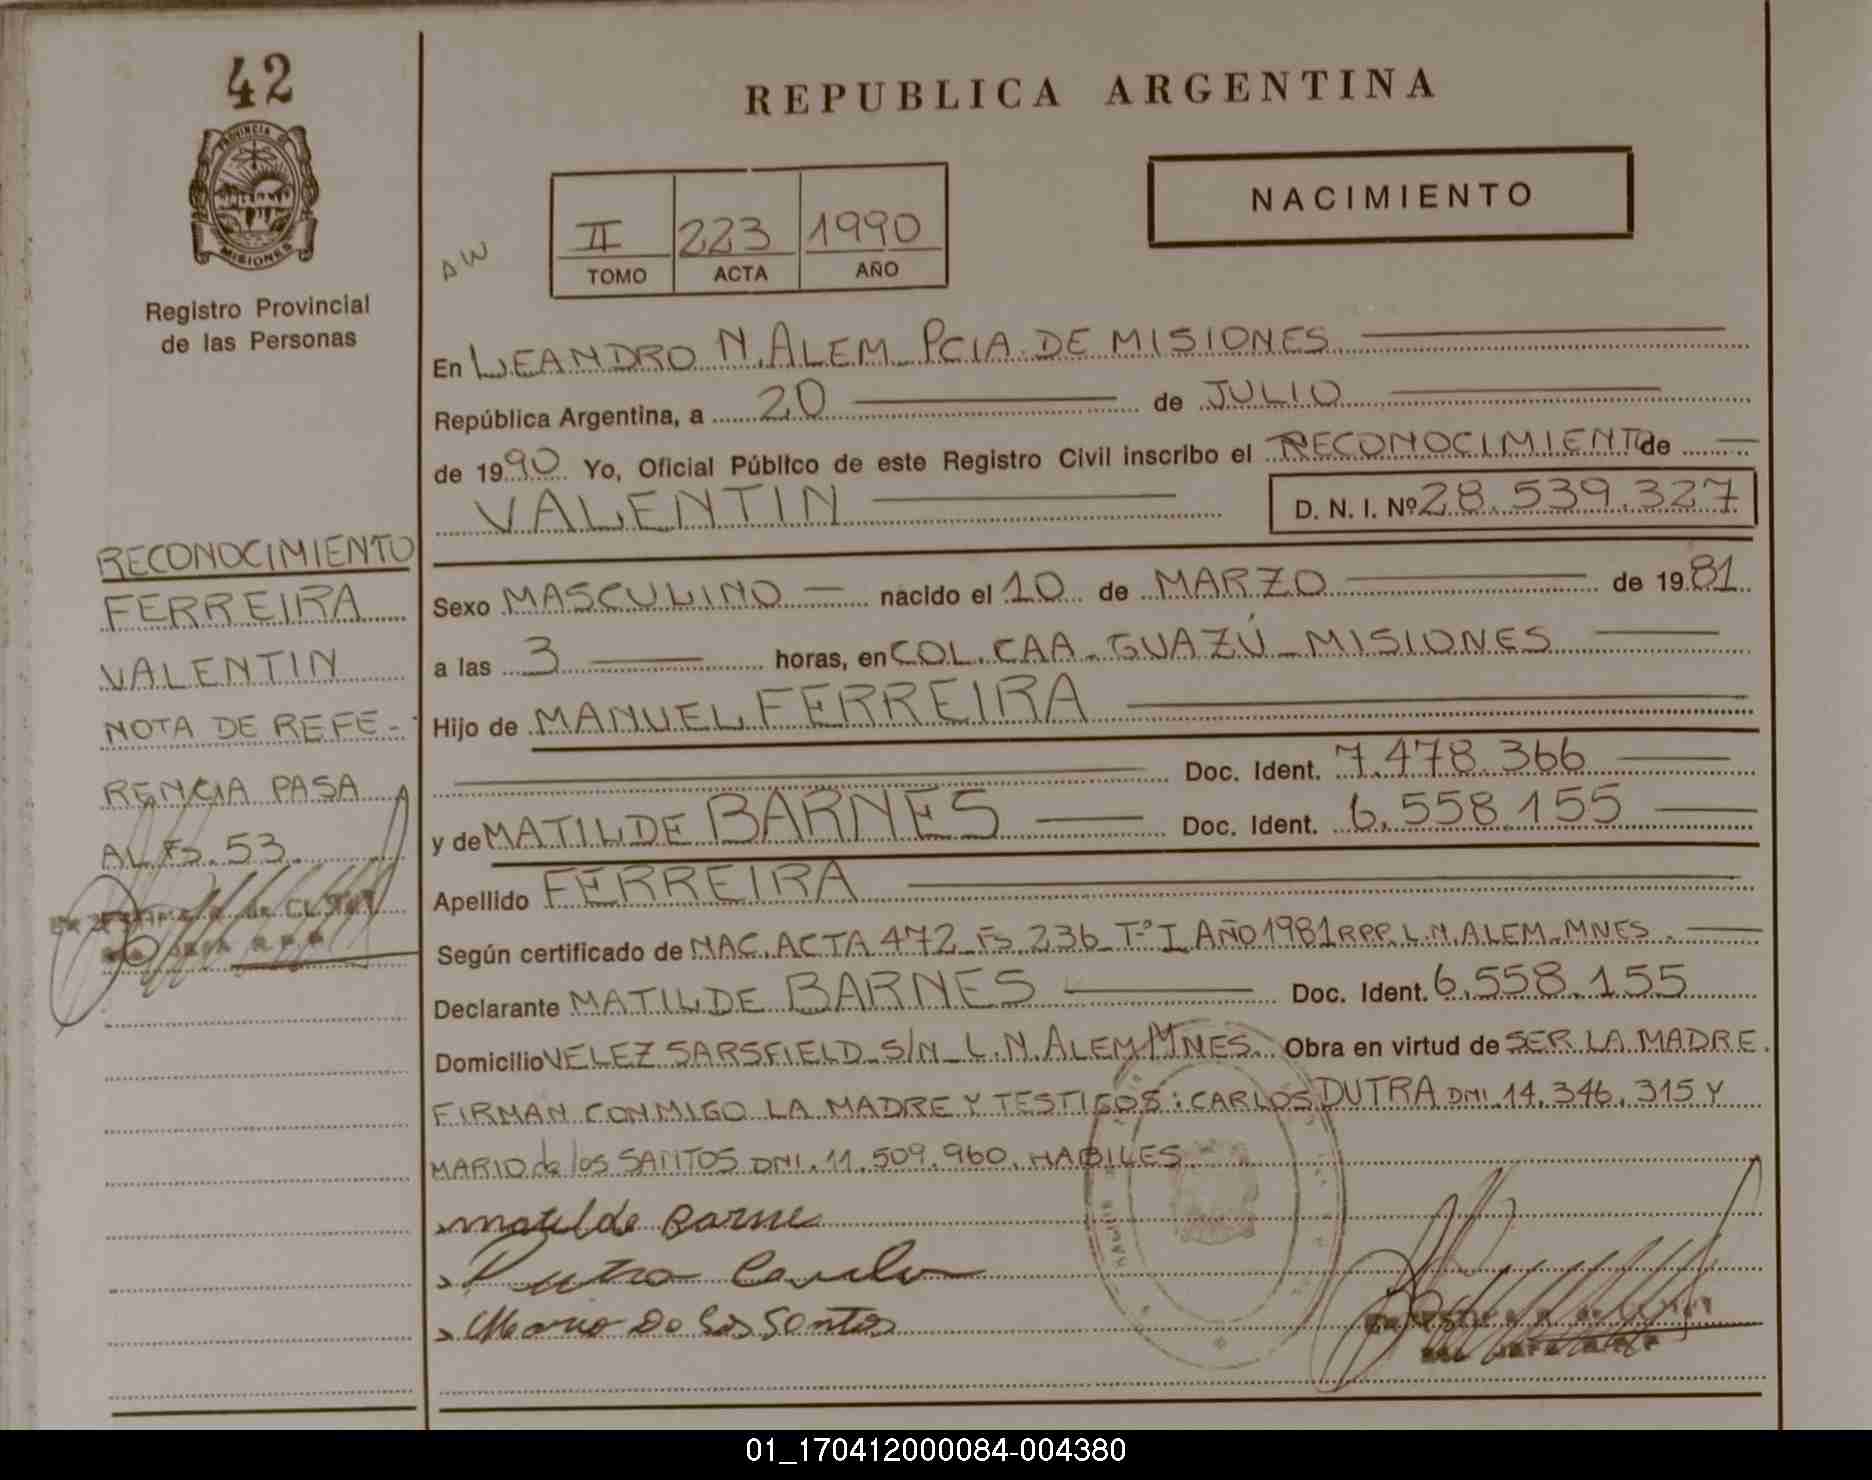 42
PROVINCIA DE
MISIONES
Registro Provincial
de las Personas
RECONOCIMIENTO
FERREIRA
VALENTIN
NOTA DE REFE-
RENCIA PASA
AL Fs. 53.
REPUBLICA ARGENTINA
NACIMIENTO
AW
II 223 1990
TOMO ACTA AÑO
En LEANDRO N. ALEM PCIA. DE MISIONES
República Argentina, a 20 de JULIO
de 1990 Yo, Oficial Público de este Registro Civil inscribo el RECONOCIMIENTO de
VALENTIN D. N. I. Nº 28.539.327
Sexo MASCULINO nacido el 10 de MARZO de 1981
a las 3 horas, en COL. CAA-GUAZÚ-MISIONES
Hijo de MANUEL FERREIRA
Doc. Ident. 7.478.366
y de MATILDE BARNES Doc. Ident. 6.558.155
Apellido FERREIRA
Según certificado de NAC. ACTA 472 Fs 236 Tº I AÑO 1981 RPP. L.N. ALEM-MNES.
Declarante MATILDE BARNES Doc. Ident. 6.558.155
Domicilio VELEZ SARSFIELD S/N L.N. ALEM MNES. Obra en virtud de SER LA MADRE.
FIRMAN CONMIGO LA MADRE Y TESTIGOS: CARLOS DUTRA DNI. 14.346.315 Y
MARIO de los SANTOS DNI. 11.509.960. HABILES.
matilde Barne
Dutra Carlos
Mario De los Santos
01_170412000084-004380